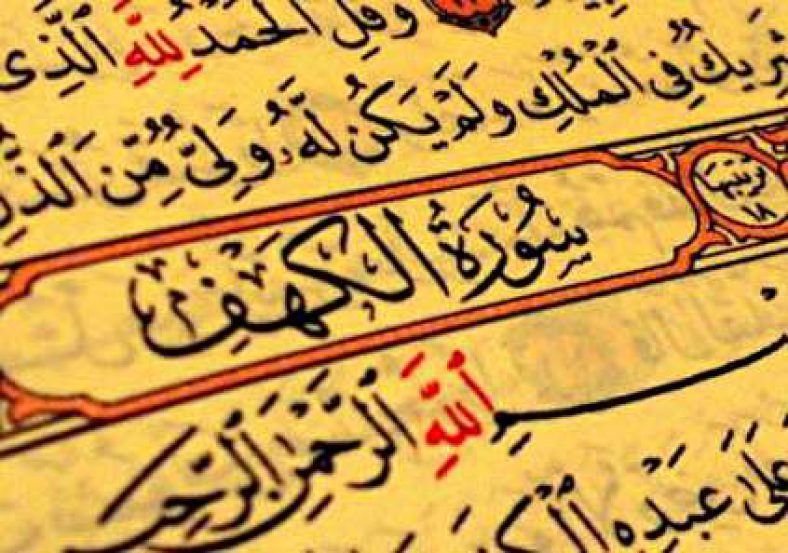 وَقُلِ ٱلْحَمْدُ لِلَّهِ ٱلَّذِى
شَرِيكٌ فِى ٱلْمُلْكِ وَلَمْ يَكُن لَّهُۥ وَلِىٌّ مِّنَ ٱلذُّلِّ
ترتيبها ١٨
سُورَةُ الكَهْفِ
بِسْمِ ٱللَّهِ ٱلرَّحْمَٰنِ ٱلرَّحِيمِ
عَلَىٰ عَبْدِهِ ٱلْكِتَٰبَ